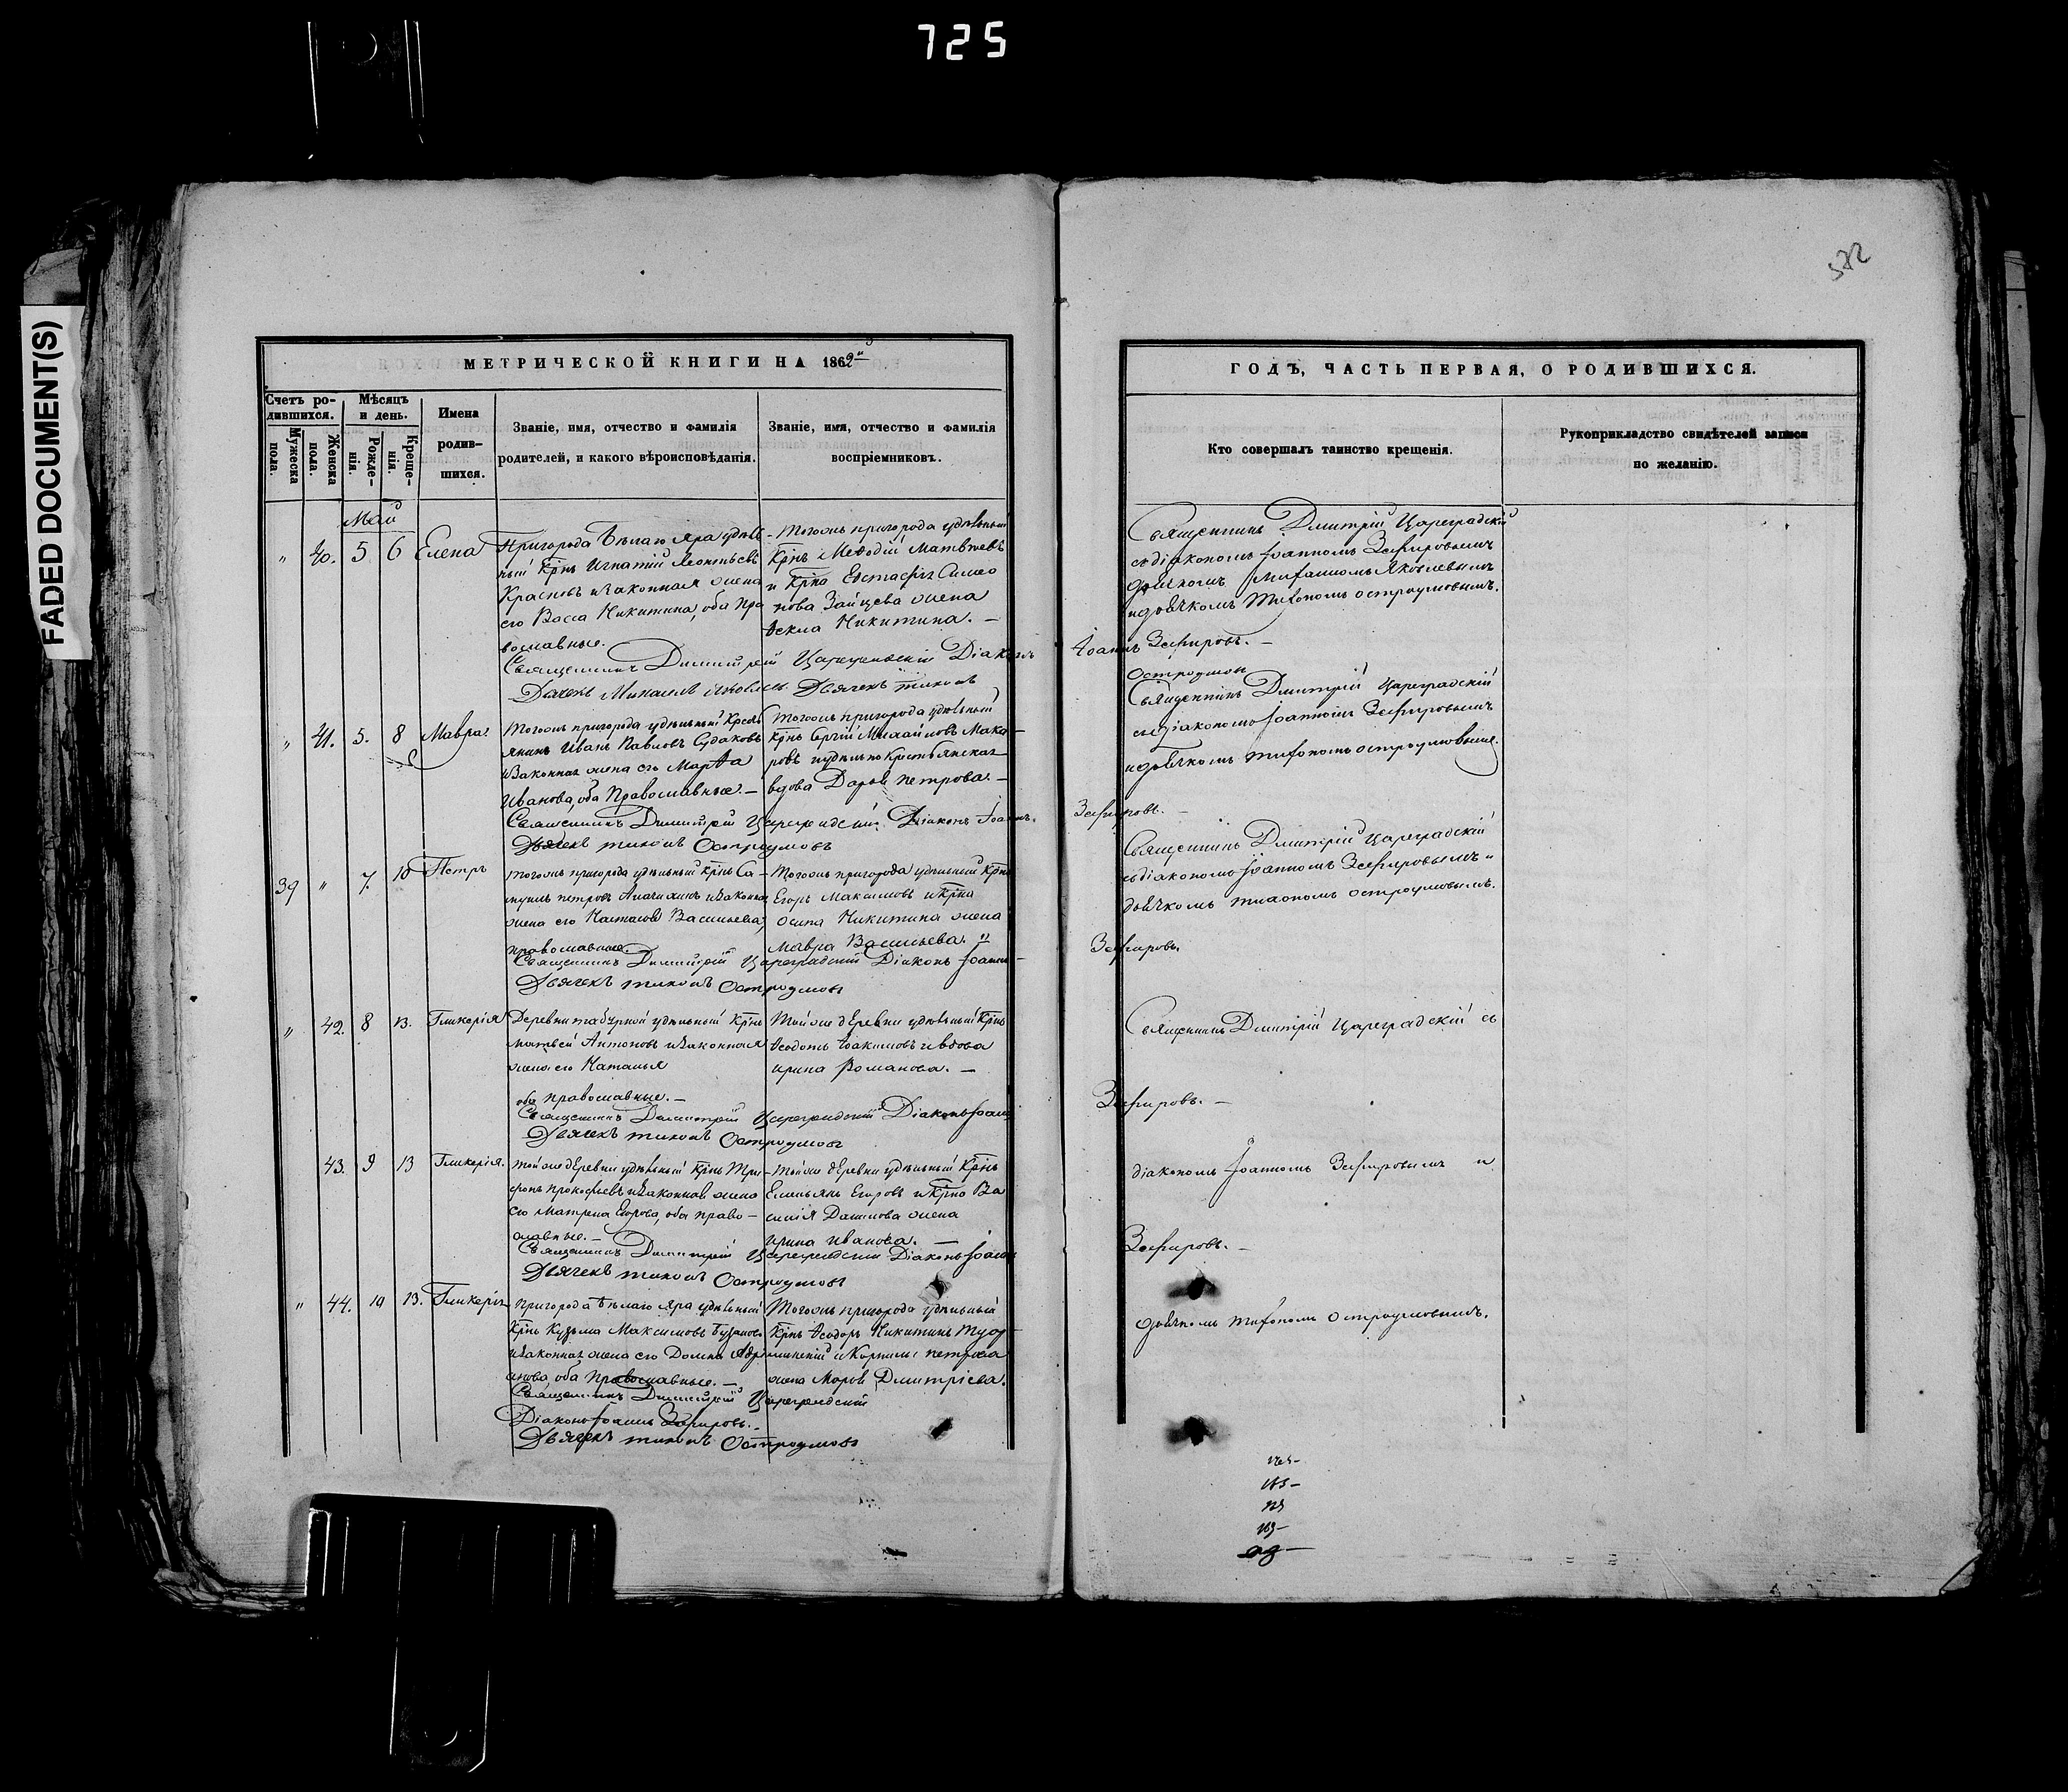 725
FADED DOCUMENT(S)
МЕТРИЧЕСКОЙ КНИГИ НА 1862
Счетъ ро-
дившихся.
Мужеска
пола.
Женска
пола.
Мѣсяцъ
и день.
Рожде-
нія.
Креще-
нія.
Имена
родив-
шихся.
Званіе, имя, отчество и фамилія
родителей, и какого вѣроисповѣданія.
Званіе, имя, отчество и фамилія
воспріемниковъ.
Май
" 40. 5 6 Елена
Пригорода Бѣлаго Яра удѣль
ный Крнъ Игнатій Леонтьевъ
Красновъ и законная жена
его Васса Никитина, оба пра
вославные.
Тогожъ пригорода удѣльный
Крнъ Меѳодій Матвѣевъ
и Крна Евстафія Симео
нова Зайцева жена
Ѳекла Никитина. —
Священникъ Димитрій Цареградскій Діаконъ Іоаннъ Зефировъ. —
Дьячекъ Михаилъ Яковлевъ Дьячекъ Тихонъ Остроумов
" 41. 5. 8 Мавра
Тогожъ пригорода удѣльный Кресть
янинъ Иванъ Павловъ Судаковъ
и Законная жена его Марѳа
Иванова, оба Православные. —
Тогожъ пригорода удѣльный
Крнъ Сергій Михайловъ Мака
ровъ и удѣльно Крестьянская
вдова Дарья Петрова. —
Священникъ Димитрій Цареградскій Діаконъ Іоаннъ Зефировъ. —
Дьячекъ Тихонъ Остроумовъ
39 " 7. 10 Петръ
Тогожъ пригорода удѣльный Крнъ Са
муилъ Петровъ и законная
жена его Настасья Васильева,
православные.
Тогожъ пригорода удѣльный Крнъ
Егоръ Максимовъ и Крна
Осипа Никитина жена
Мавра Васильева. "
Священникъ Димитрій Цареградскій Діаконъ Іоаннъ Зефировъ.
Дьячекъ Тихонъ Остроумовъ
" 42. 8 13. Гликерія
Деревни Табурной удѣльный Крнъ
Матвей Антоновъ и законная
жена его Наталья
оба православные. —
Той же деревни удѣльный Крнъ
Ѳеодотъ Іоакимовъ и вдова
Ирина Романова. —
Священникъ Димитрій Цареградскій Діаконъ Іоаннъ Зефировъ. —
Дьячекъ Тихонъ Остроумовъ
43. 9 13 Гликерія.
Той же деревни удѣльный Крнъ Три
фонъ Прокофьевъ и Законная жена
его Матрена Егорова, оба право —
славные. —
Той же деревни удѣльный Крнъ
Емельянъ Егоровъ и Крна Ва
силія Данилова жена
Ирина Иванова. —
Священникъ Димитрій Цареградскій Діаконъ Іоаннъ Зефировъ. —
Дьячекъ Тихонъ Остроумовъ
" 44. 10 13. Гликерія
Пригорода Бѣлаго Яра удѣльный
Крнъ Кузьма Максимовъ
и Законная жена его Домна Адрі
анова, оба Православные. —
Тогожъ пригорода удѣльный
Крнъ Ѳеодоръ Никитинъ
и Корнила Петрова
жена Марья Дмитріева.
Священникъ Димитрій Цареградскій
Діаконъ Іоаннъ Зефировъ. —
Дьячекъ Тихонъ Остроумовъ
ГОДЪ, ЧАСТЬ ПЕРВАЯ, О РОДИВШИХСЯ.
Кто совершалъ таинство крещенія.
Рукоприкладство свидѣтелей записи
по желанію.
Священникъ Дмитрій Цареградскій
съ діакономъ Іоанномъ Зефировымъ
дьячкомъ Михаиломъ Яковлевымъ
и дьячкомъ Тихономъ Остроумовымъ.
Священникъ Дмитрій Цареградскій
съ діакономъ Іоанномъ Зефировымъ
и дьячкомъ Тихономъ Остроумовымъ.
Священникъ Дмитрій Цареградскій
съ діакономъ Іоанномъ Зефировымъ и
дьячкомъ Тихономъ Остроумовымъ.
Священникъ Дмитрій Цареградскій съ
діакономъ Іоанномъ Зефировымъ и
дьячкомъ Тихономъ Остроумовымъ.